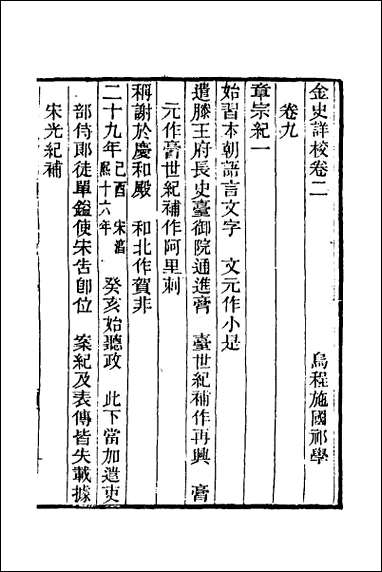 金史詳校卷二 烏程施國祁學
卷九
章宗紀一
始習本朝語言文字 文元作小是
遣滕王府長史臺御院通進膏 臺世紀補作再興 膏
元作膏世紀補作阿里刺
稱謝於慶和殿 和北作賀非
二十九年己酉 宋淳熙十六年 癸亥始聽政 此下當加遣吏
部侍郎徒單鎰使宋告卽位 案紀及表傳皆失載據
宋光紀補